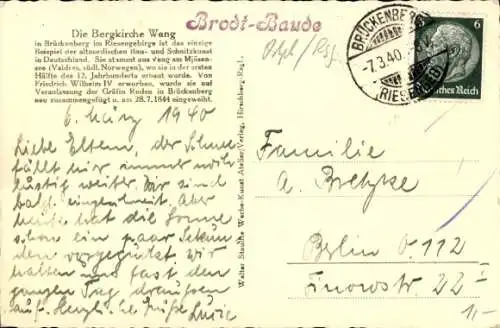 Die Bergkirche Wang
in Brückenberg im Riesengebirge ist das einzige
Beispiel der altnordischen Bau- und Schnitzkunst
in Deutschland. Sie stammt aus Vang am Mjösen-
see (Valdres, südl. Norwegen), wo sie in der ersten
Hälfte des 12. Jahrhunderts erbaut wurde. Von
Friedrich Wilhelm IV erworben, wurde sie auf
Veranlassung der Gräfin Reden in Brückenberg
neu zusammengefügt u. am 28.7.1844 eingeweiht.
Brodt-Baude
BRÜCKENBERG
-7.3.40.
(RIESENGEB)
6
Deutsches Reich
6. März 1940
Liebe Eltern, der Schnee
fällt hier immer noch
lustig weiter. Wir sind
bald eingeschneit. Aber
heute hat die Sonne
schon ein paar Sekun
den vorgeguckt. Wir
halten uns fast den
ganzen Tag draussen
auf. Herzl. Grüße
Walter Staudte, Werbe-Kunst Atelier/Verlag, Hirschberg-Rsgb.
Familie
A. Bretzke
Berlin O. 112
Finowstr. 22